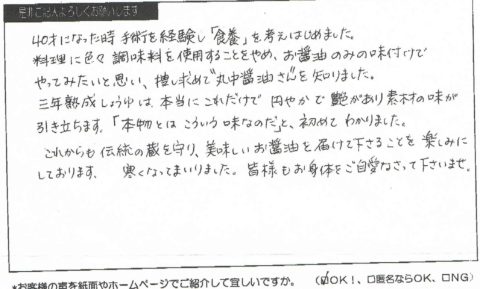 是非ご記入よろしくお願いします
40才になった時 手術を経験し「食養」を考えはじめました。
料理に色々 調味料を使用することをやめ、お醤油のみの味付けで
やってみたいと思い、捜し求めて"丸中醤油さん"を知りました。
三年熟成しょうゆは、本当にこれだけで 円やかで 艶があり素材の味が
引き立ちます。「本物とは こういう味なのだ」と、初めて わかりました。
これからも 伝統の蔵を守り、美味しいお醤油を 届けて下さることを 楽しみに
しております。 寒くなってまいりました。皆様もお身体をご自愛なさって下さいませ。
*お客様の声を紙面やホームページでご紹介して宜しいですか。 (☑OK!、□匿名ならOK、□NG)